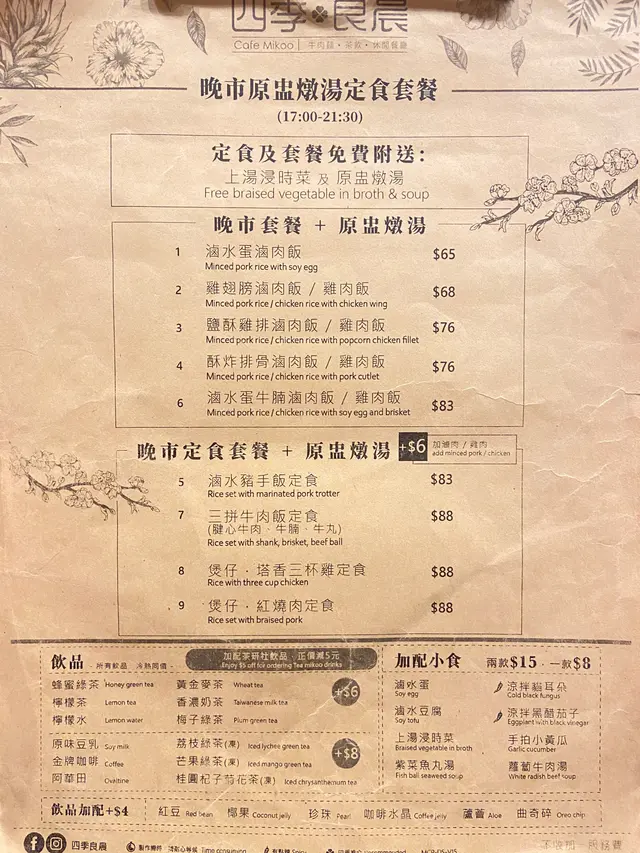 四季良晨
Cafe Mikoo 牛肉麵・茶飲・休閒餐廳
晚市原盅燉湯定食套餐
(17:00-21:30)
定食及套餐免費附送:
上湯浸時菜 及 原盅燉湯
Free braised vegetable in broth & soup
晚市套餐 + 原盅燉湯
1 滷水蛋滷肉飯 $65
Minced pork rice with soy egg
2 雞翅膀滷肉飯 / 雞肉飯 $68
Minced pork rice / chicken rice with chicken wing
3 鹽酥雞排滷肉飯 / 雞肉飯 $76
Minced pork rice / chicken rice with popcorn chicken fillet
4 酥炸排骨滷肉飯 / 雞肉飯 $76
Minced pork rice / chicken rice with pork cutlet
6 滷水蛋牛腩滷肉飯 / 雞肉飯 $83
Minced pork rice / chicken rice with soy egg and brisket
晚市定食套餐 + 原盅燉湯 +$6 加滷肉 / 雞肉
add minced pork / chicken
5 滷水豬手飯定食 $83
Rice set with marinated pork trotter
7 三拼牛肉飯定食 $88
(腱心牛肉、牛腩、牛丸)
Rice set with shank, brisket, beef ball
8 煲仔・塔香三杯雞定食 $88
Rice with three cup chicken
9 煲仔・紅燒肉定食 $88
Rice set with braised pork
飲品 - 所有飲品 冷熱同價 -
加配茶研社飲品 正價減5元
Enjoy $5 off for ordering Tea mikoo drinks
蜂蜜綠茶 Honey green tea 黃金麥茶 Wheat tea
檸檬茶 Lemon tea 香濃奶茶 Taiwanese milk tea +$6
檸檬水 Lemon water 梅子綠茶 Plum green tea
原味豆乳 Soy milk 荔枝綠茶(凍) Iced lychee green tea
金牌咖啡 Coffee 芒果綠茶(凍) Iced mango green tea +$8
阿華田 Ovaltine 桂圓杞子菊花茶(凍) Iced chrysanthemum tea
加配小食 兩款$15・一款$8
滷水蛋 涼拌貓耳朵
Soy egg Cold black fungus
滷水豆腐 涼拌黑醋茄子
Soy tofu Eggplant with black vinegar
上湯浸時菜 手拍小黃瓜
Braised vegetable in broth Garlic cucumber
紫菜魚丸湯 蘿蔔牛肉湯
Fish ball seaweed soup White radish beef soup
飲品加配+$4 紅豆 Red bean 椰果 Coconut jelly 珍珠 Pearl 咖啡水晶 Coffee jelly 蘆薈 Aloe 曲奇碎 Oreo chip
四季良晨 Time consuming